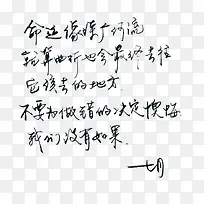 命运像条广河流
就算曲折也会最终去往
应该去的地方.
不要为做错的决定懊悔
我们没有如果.
——七月